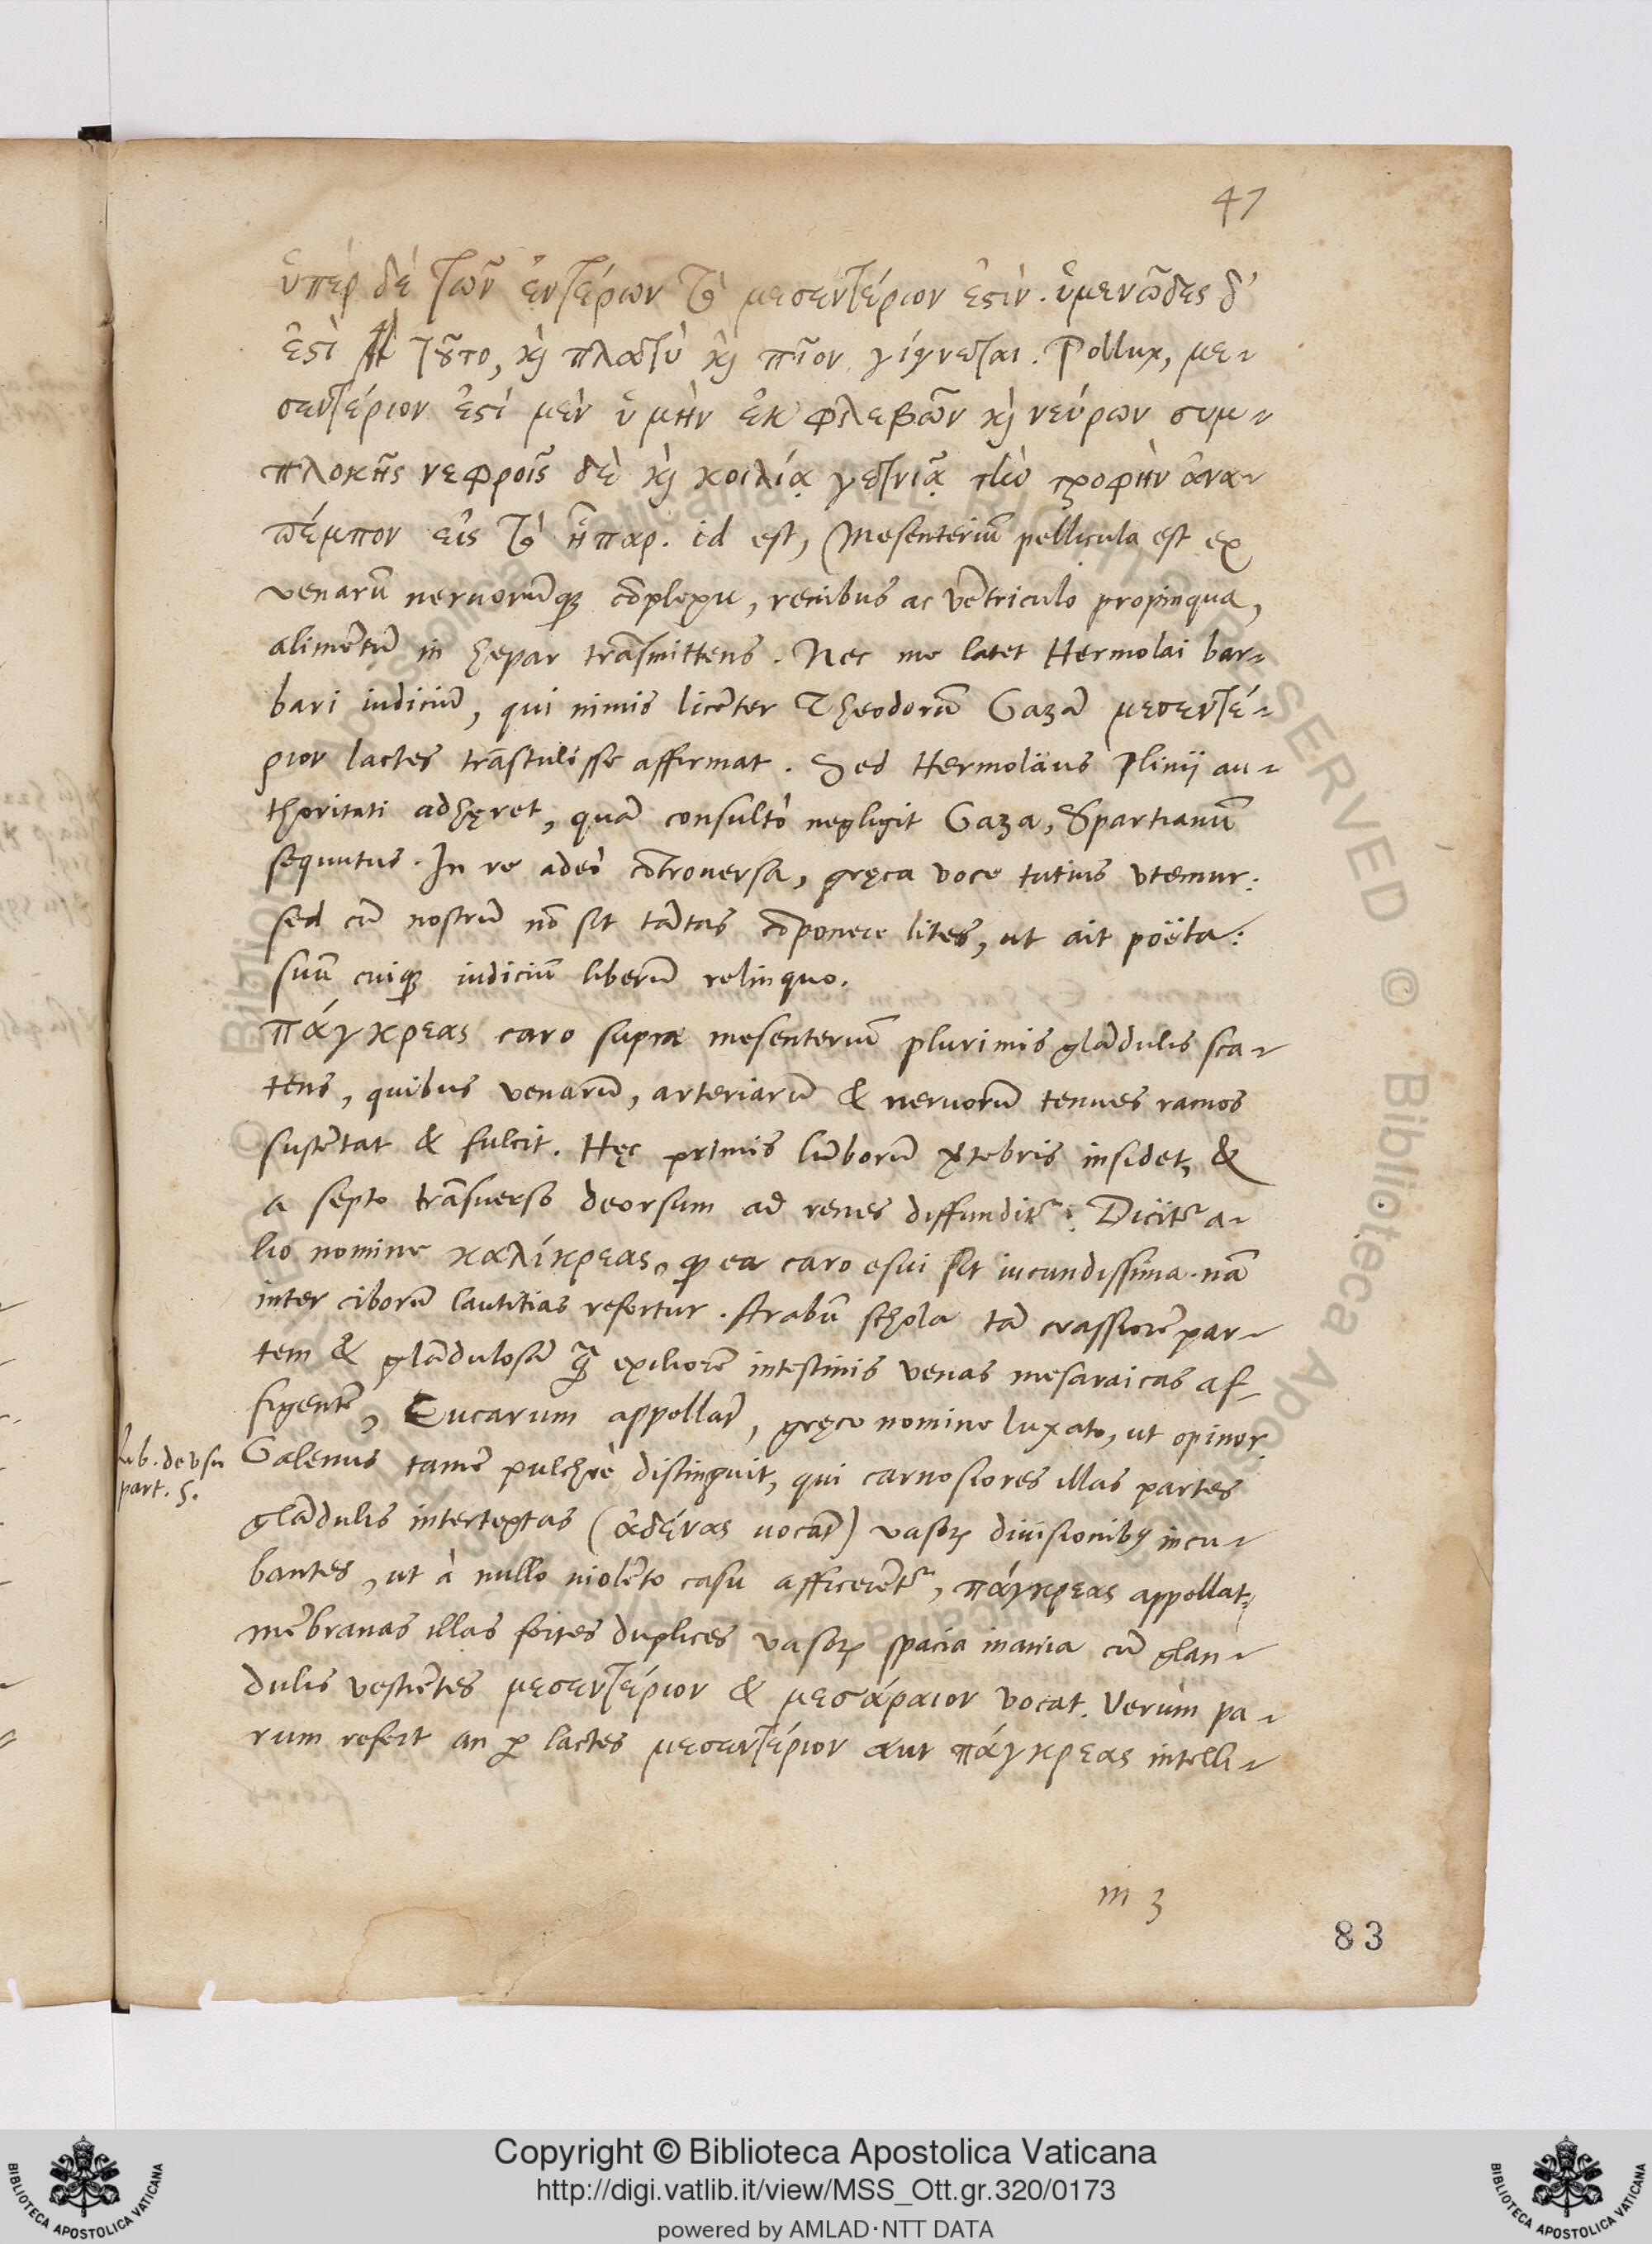 47
ὑπὲρ δὲ τῶν ἐντέρων τὸ μεσεντέριον ἐστίν. ὑμενῶδες δ'
ἐστὶ τοῦτο, καὶ πλατὺ καὶ πῖον γίγνεται. Pollux, με-
σεντέριον ἐστὶ μὲν ὑμὴν ἐκ φλεβῶν καὶ νεύρων συμ-
πλοκῆς νεφροῖς δὲ καὶ κοιλίᾳ γειτνιᾷ τὴν τροφὴν ἀνα-
πέμπον εἰς τὸ ἧπαρ. id est, Mesenteriū pellicula est ex
venarū neruorūq; cōplexu, renibus ac vētriculo propinqua,
alimētū in hepar trāsmittens. Nec me latet Hermolai bar-
bari iudiciū, qui nimis licēter Theodorū Gazā μεσεντέ-
ριον lactes trāstulisse affirmat. Sed Hermoläus Plinij au-
thoritati adhęret, quā consultò negligit Gaza, Spartianū
sequutus. In re adeò cōtrouersa, gręca voce tutius vtemur:
sed cū nostrū nō sit tātas cōponere lites, ut ait poëta:
suū cuiq; iudiciū liberū relinquo.
πάγκρεας caro supra mesenteriū plurimis glādulis sca-
tens, quibus venarū, arteriarū & neruorū tenues ramos
sustētat & fulcit. Hęc primis lūborū v̄tebris insidet, &
a septo trāsuerso deorsum ad renes diffunditr. Dicitr a-
lio nomine καλίκρεας, q; ea caro esui sit iucundissima. nā
inter ciborū lautitias refertur. Arabū schola tā crassiorē par-
tem & glādulosā q̄ exiliorē intestinis venas mesaraicas af-
figentē, Eucarum appellāt, gręco nomine luxato, ut opinor.
lib. de vsu
part. 5.
Galenus tamē pulchrè distinguit, qui carnosiores illas partes
glādulis intertextas (ἀδένας uocāt) vasorꝝ diuisionibꝰ incu-
bantes, ut à nullo uiolēto casu afficerētr, πάγκρεας appellat,
mēbranas illas fortes duplices vasorꝝ spacia inania cū glan-
dulis vestiētes μεσεντέριον & μεσάραιον vocat. Verùm pa-
rum refert an ꝑ lactes μεσεντέριον aut πάγκρεας intelli-
m 3
83
© Biblioteca Apostolica Vaticana
Copyright © Biblioteca Apostolica Vaticana
http://digi.vatlib.it/view/MSS_Ott.gr.320/0173
powered by AMLAD·NTT DATA
BIBLIOTECA APOSTOLICA VATICANA
BIBLIOTECA APOSTOLICA VATICANA